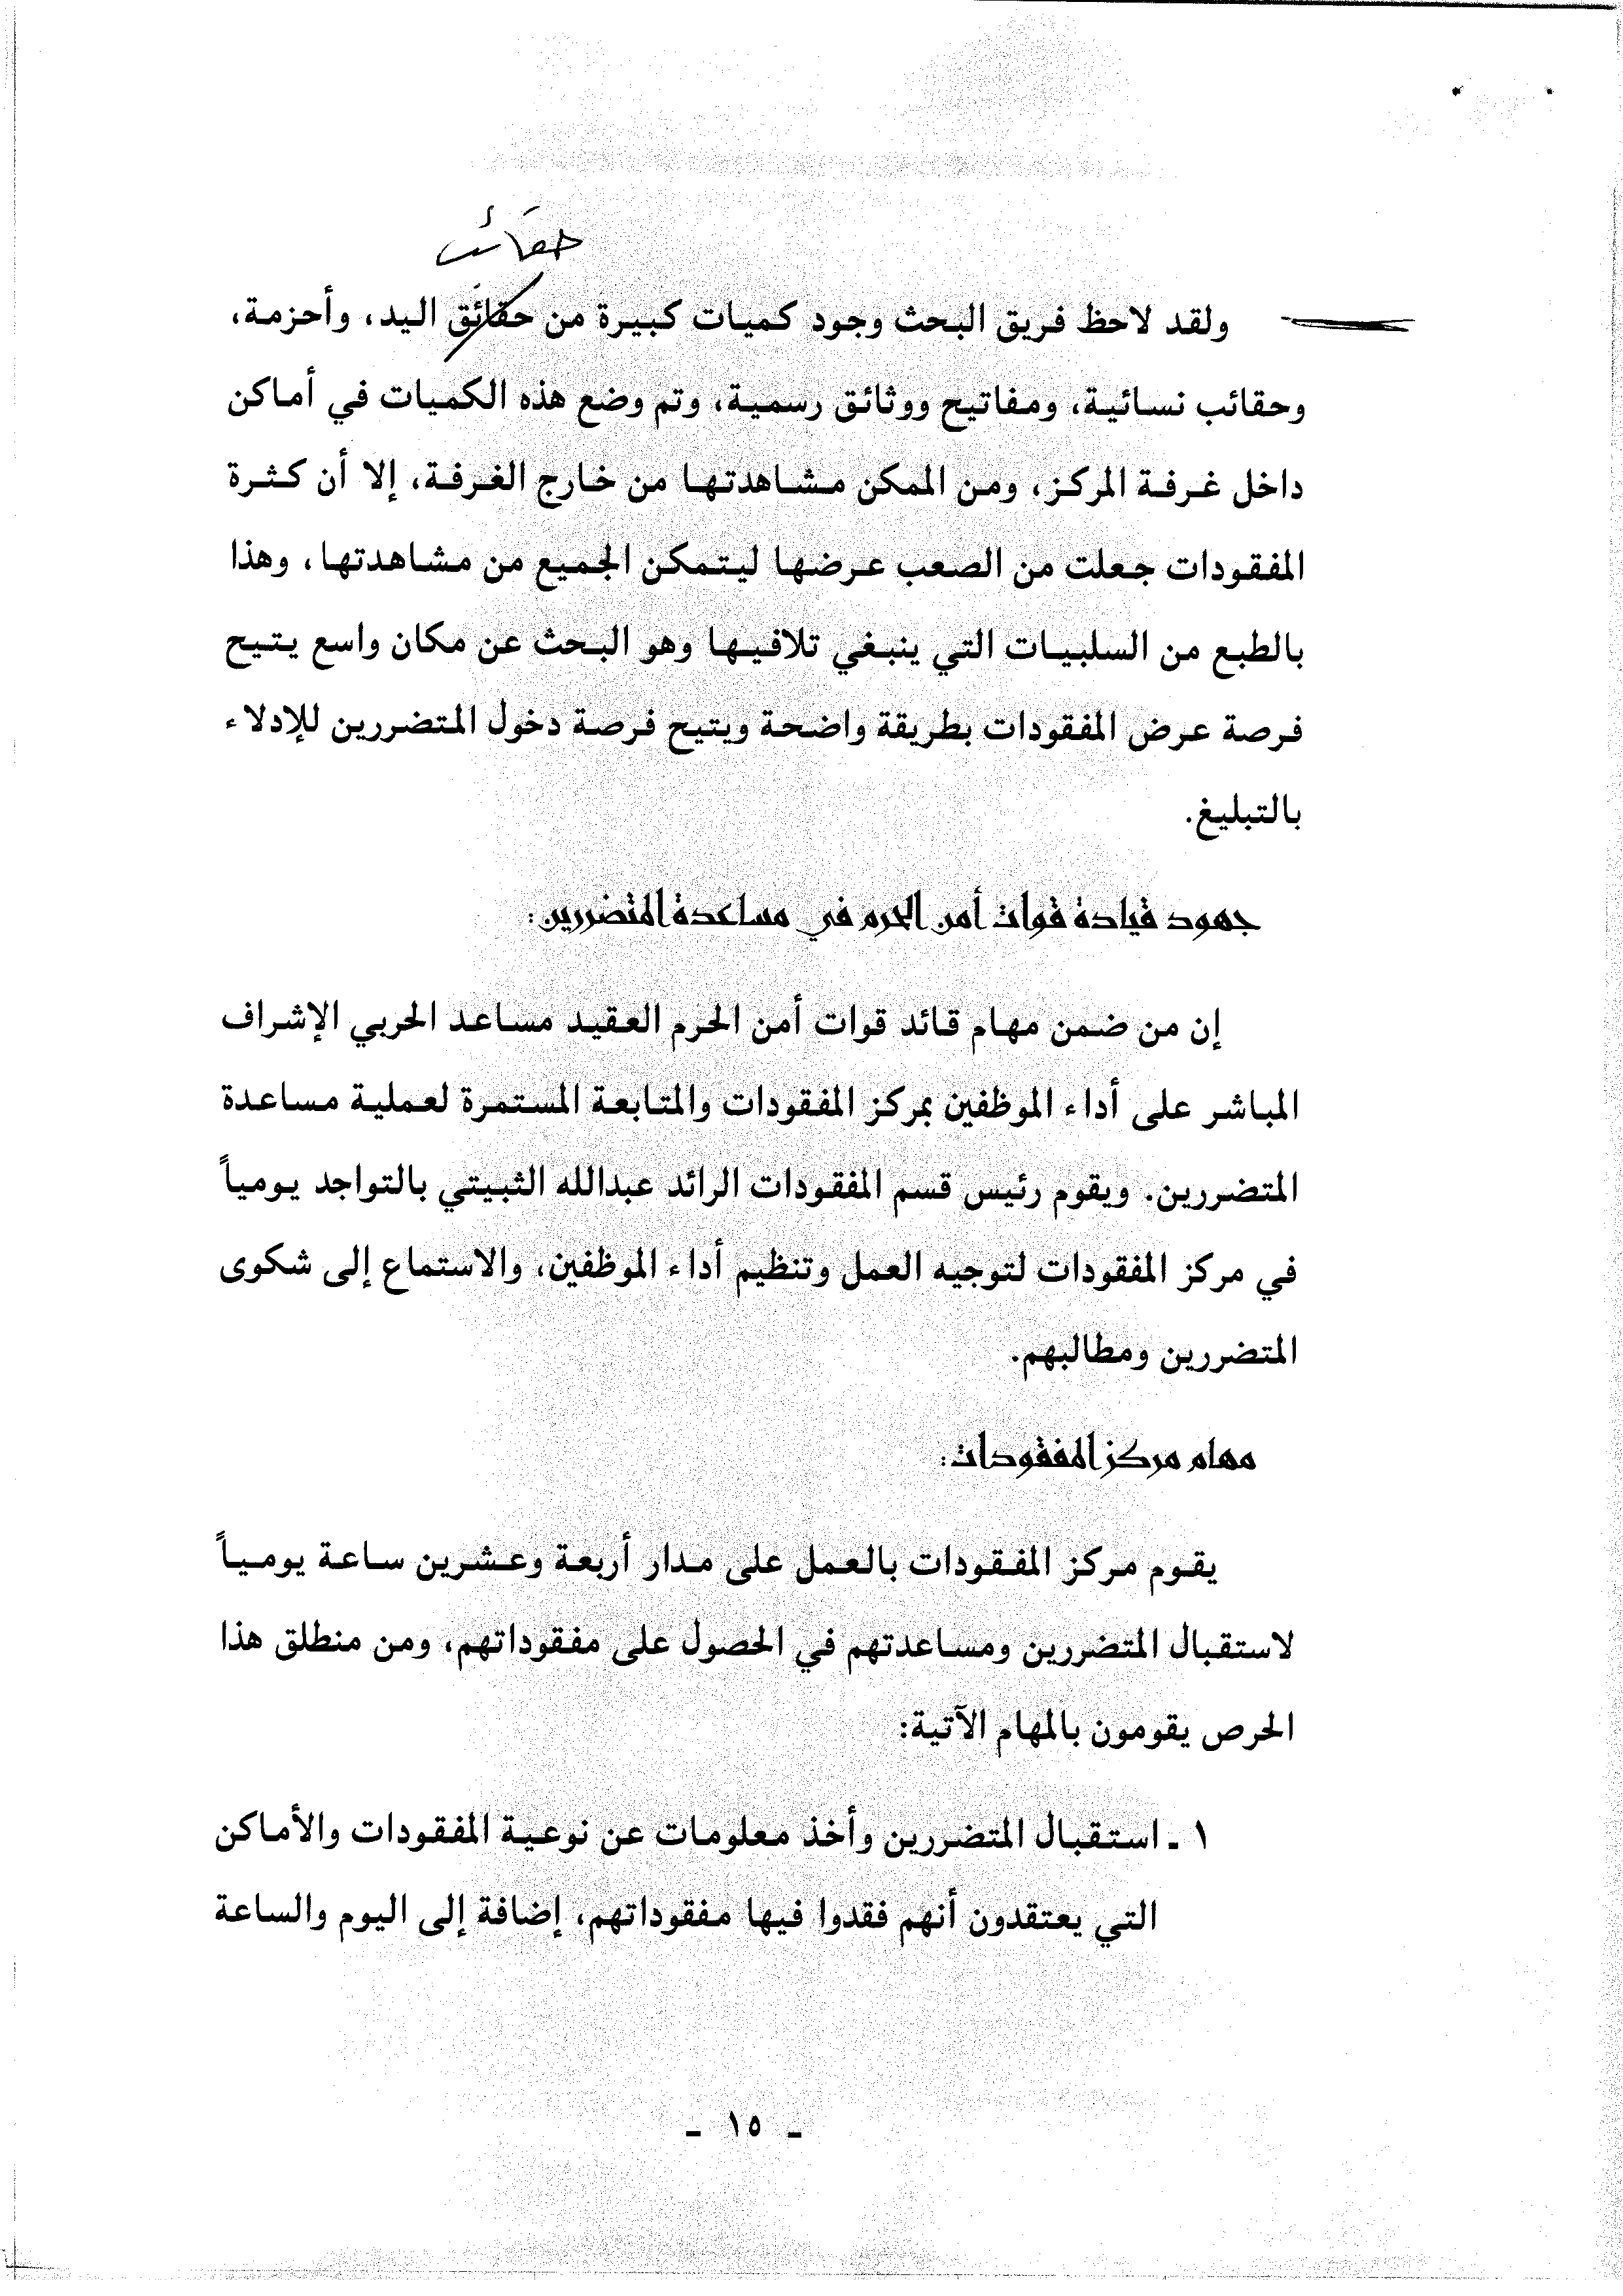 حقائب
ولقد لاحظ فريق البحث وجود كميات كبيرة من حقائق اليد، وأحزمة،
وحقائب نسائية، ومفاتيح ووثائق رسمية، وتم وضع هذه الكميات في أماكن
داخل غرفة المركز، ومن الممكن مشاهدتها من خارج الغرفة، إلا أن كثرة
المفقودات جعلت من الصعب عرضها ليتمكن الجميع من مشاهدتها، وهذا
بالطبع من السلبيات التي ينبغي تلافيها وهو البحث عن مكان واسع يتيح
فرصة عرض المفقودات بطريقة واضحة ويتيح فرصة دخول المتضررين للإدلاء
بالتبليغ.
جهود قيادة قوات أمن الحرم في مساعدة المتضررين:
إن من ضمن مهام قائد قوات أمن الحرم العقيد مساعد الحربي الإشراف
المباشر على أداء الموظفين بمركز المفقودات والمتابعة المستمرة لعملية مساعدة
المتضررين. ويقوم رئيس قسم المفقودات الرائد عبدالله الثبيتي بالتواجد يومياً
في مركز المفقودات لتوجيه العمل وتنظيم أداء الموظفين، والاستماع إلى شكوى
المتضررين ومطالبهم.
مهام مركز المفقودات:
يقوم مركز المفقودات بالعمل على مدار أربعة وعشرين ساعة يومياً
لاستقبال المتضررين ومساعدتهم في الحصول على مفقوداتهم، ومن منطلق هذا
الحرص يقومون بالمهام الآتية:
١ ـ استقبال المتضررين وأخذ معلومات عن نوعية المفقودات والأماكن
التي يعتقدون أنهم فقدوا فيها مفقوداتهم، إضافة إلى اليوم والساعة
ـ ١٥ ـ